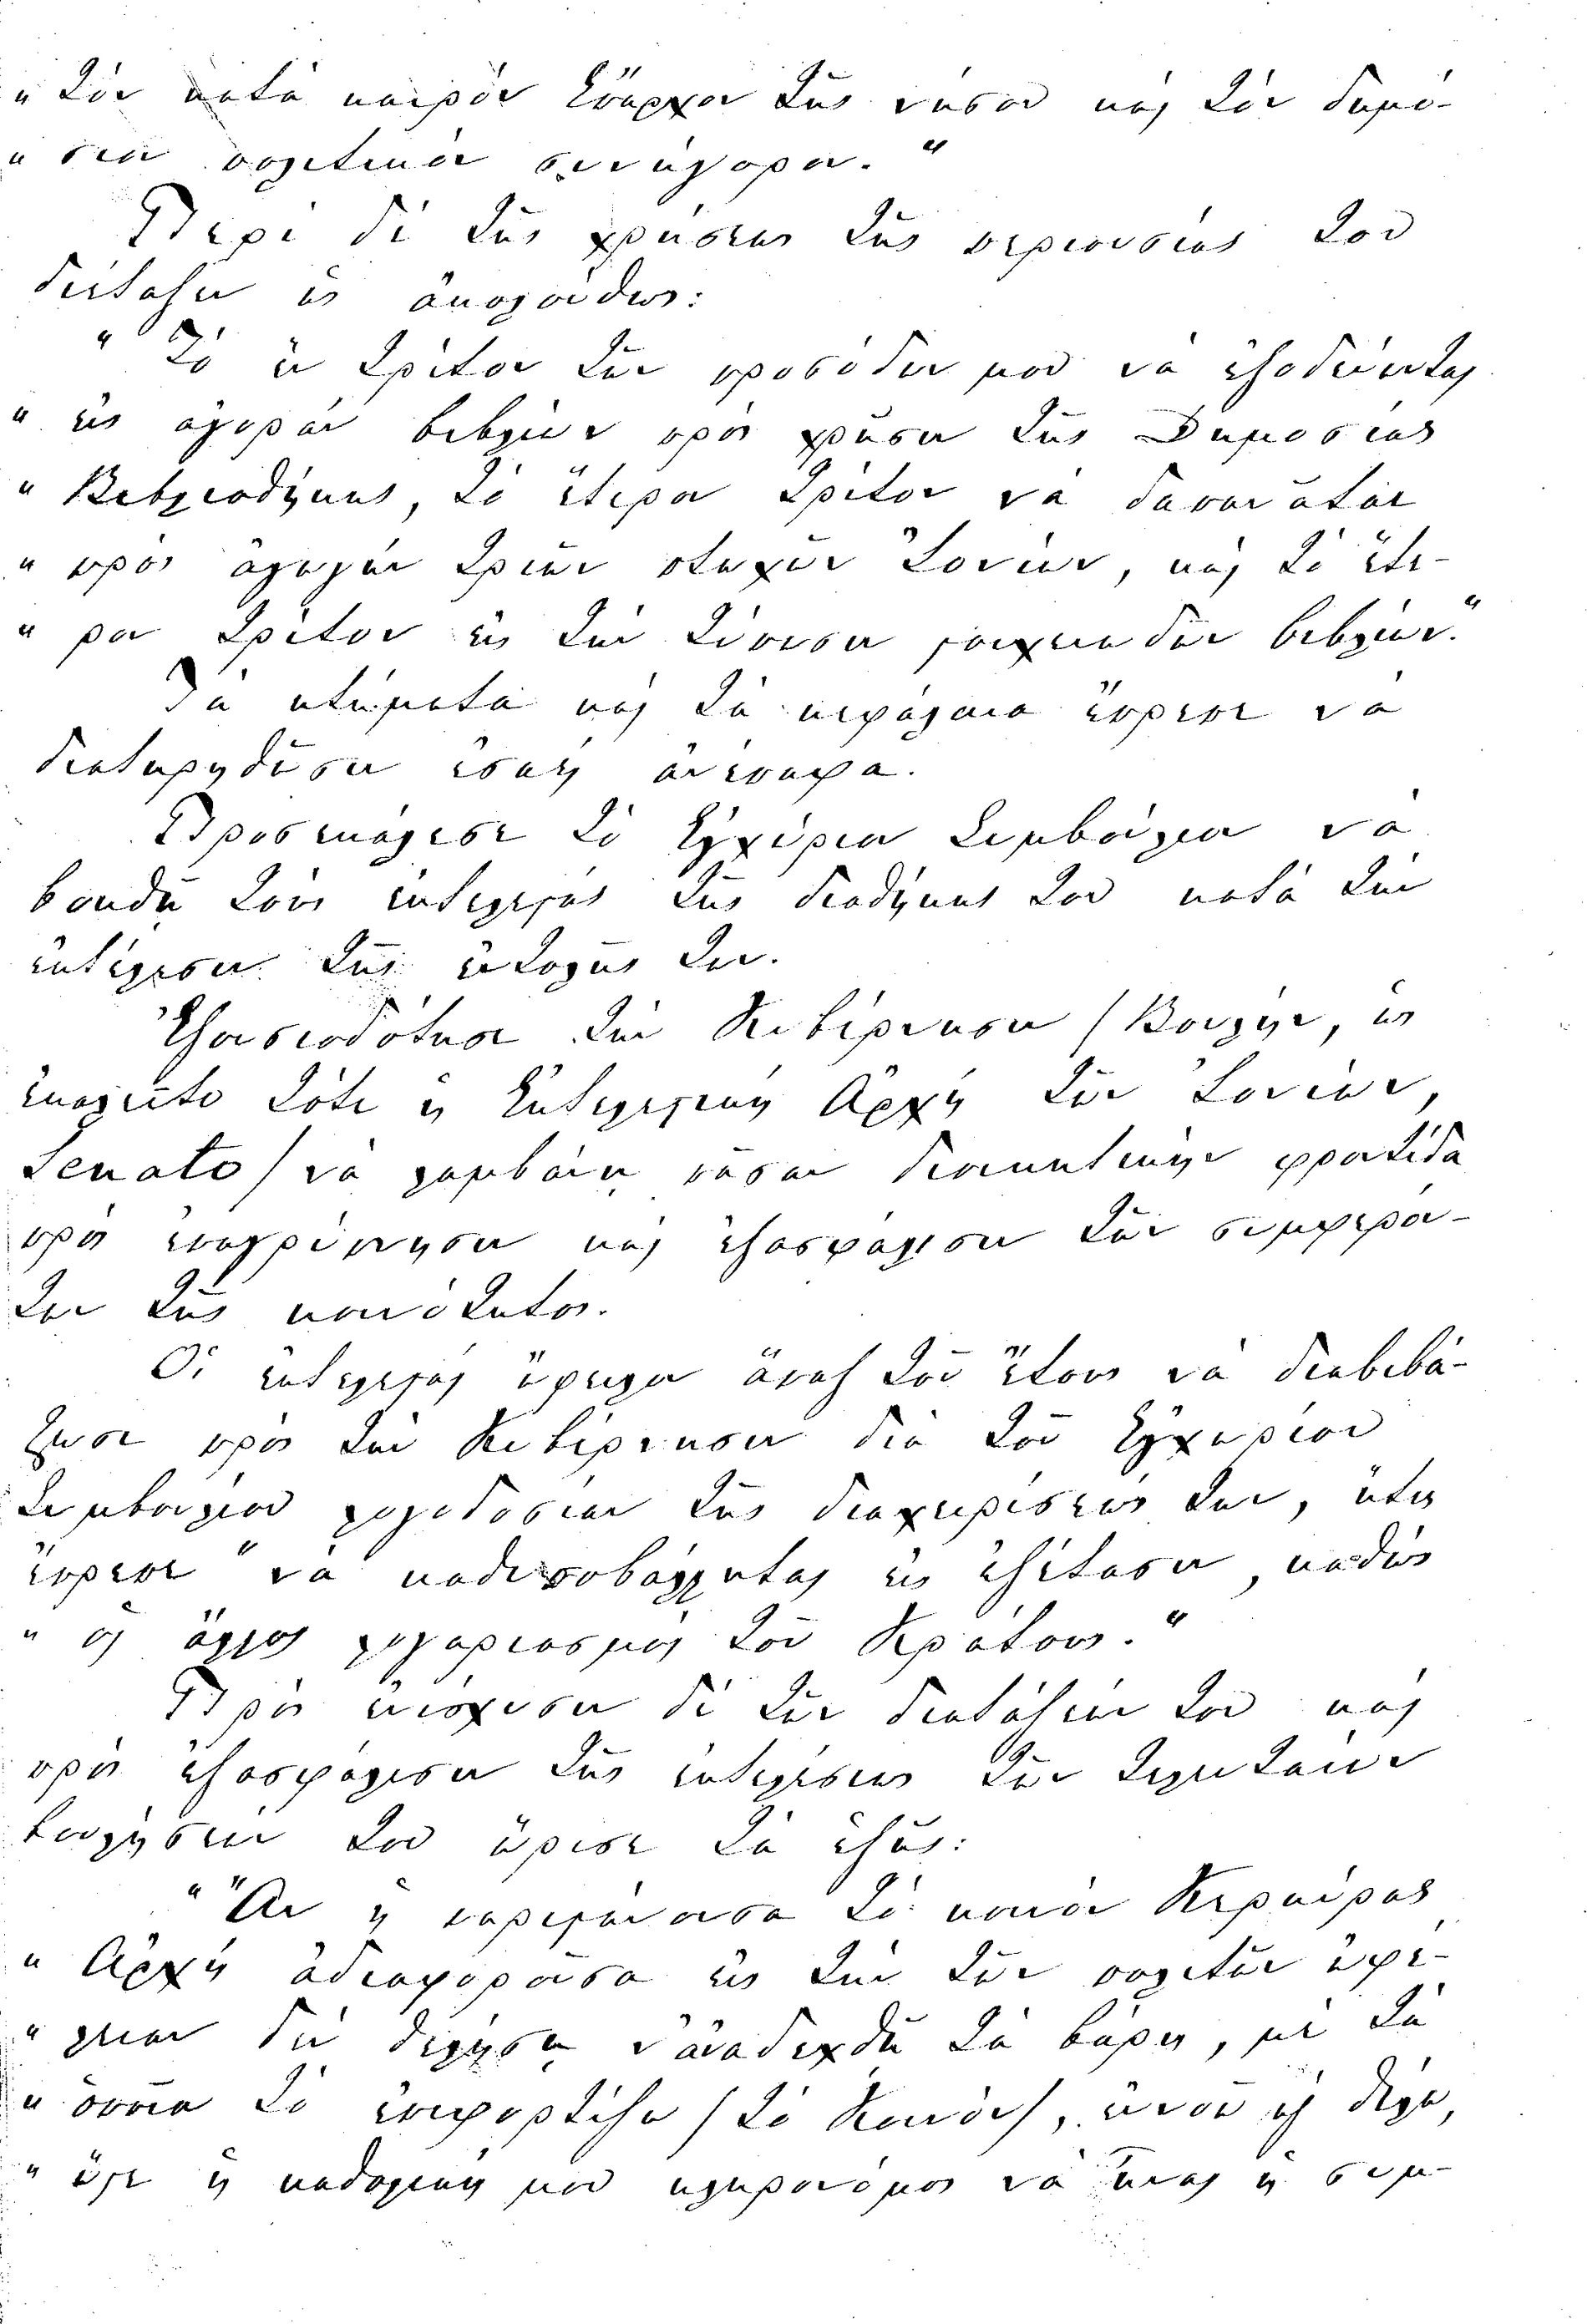 „ τὸν κατὰ καιρὸν ἔπαρχον τῆς νήσου καὶ τὸν δημό-
„ σιον πολιτικὸν συνήγορον. “
Περὶ δὲ τῆς χρήσεως τῆς περιουσίας του
διέταξεν ὡς ἀκολούθως:
„ Τὸ ἓν τρίτον τῶν προσόδων μου νὰ ἐξοδεύηται
„ εἰς ἀγορὰν βιβλίων πρὸς χρῆσιν τῆς Δημοσίας
„ Βιβλιοθήκης, τὸ ἕτερον τρίτον νὰ δαπανᾶται
„ πρὸς ἀγωγὴν τριῶν πτωχῶν Ἰονίων, καὶ τὸ ἕτε-
„ ρον τρίτον εἰς τὴν τύπωσιν βιβλίων.“
Τὰ κτήματα καὶ τὰ κεφάλαια ὥρισε νὰ
διατηρηθῶσιν ἐσαεὶ ἀκέραια.
Προσεκάλεσε τὸ Ἐγχώριον Συμβούλιον νὰ
βοηθῇ τοὺς ἐκτελεστὰς τῆς διαθήκης του κατὰ τὴν
ἐκτέλεσιν τῆς ἐντολῆς των.
Ἐξουσιοδότησε τὴν Κυβέρνησιν (Βουλήν, ὡς
ἐκαλεῖτο τότε ἡ Ἐκτελεστικὴ Ἀρχὴ τῶν Ἰονίων,
Senato) νὰ λαμβάνῃ πᾶσαν διοικητικὴν φροντίδα
πρὸς ἐπαγρύπνησιν καὶ ἐξασφάλισιν τῶν συμφερόν-
των τῆς κοινότητος.
Οἱ ἐκτελεσταὶ ὤφειλον ἅπαξ τοῦ ἔτους νὰ διαβιβά-
ζωσι πρὸς τὴν Κυβέρνησιν διὰ τοῦ Ἐγχωρίου
Συμβουλίου λογοδοσίαν τῆς διαχειρίσεώς των, ἥτις
ὥρισε „ νὰ καθυποβάλληται εἰς ἐξέτασιν, καθὼς
„ οἱ ἄλλοι λογαριασμοὶ τοῦ Κράτους. “
Πρὸς ἐνίσχυσιν δὲ τῶν διατάξεών του καὶ
πρὸς ἐξασφάλισιν τῆς ἐκτελέσεως τῶν τελευταίων
βουλήσεών του ὥρισε τὰ ἑξῆς:
„ Ἂν ἡ τὸ κοινὸν Κερκύρας
„ Ἀρχὴ ἀδιαφοροῦσα εἰς τὴν τῶν πολιτῶν ὠφέ-
„ λειαν δὲν θελήσῃ ν’ ἀναδεχθῇ τὰ βάρη, μὲ τὰ
„ ὁποῖα τὸ ἐπιφορτίζω (τὸ Κοινόν),
„ ἡ καθολική μου κληρονόμος νὰ εἶναι ἡ συμ-